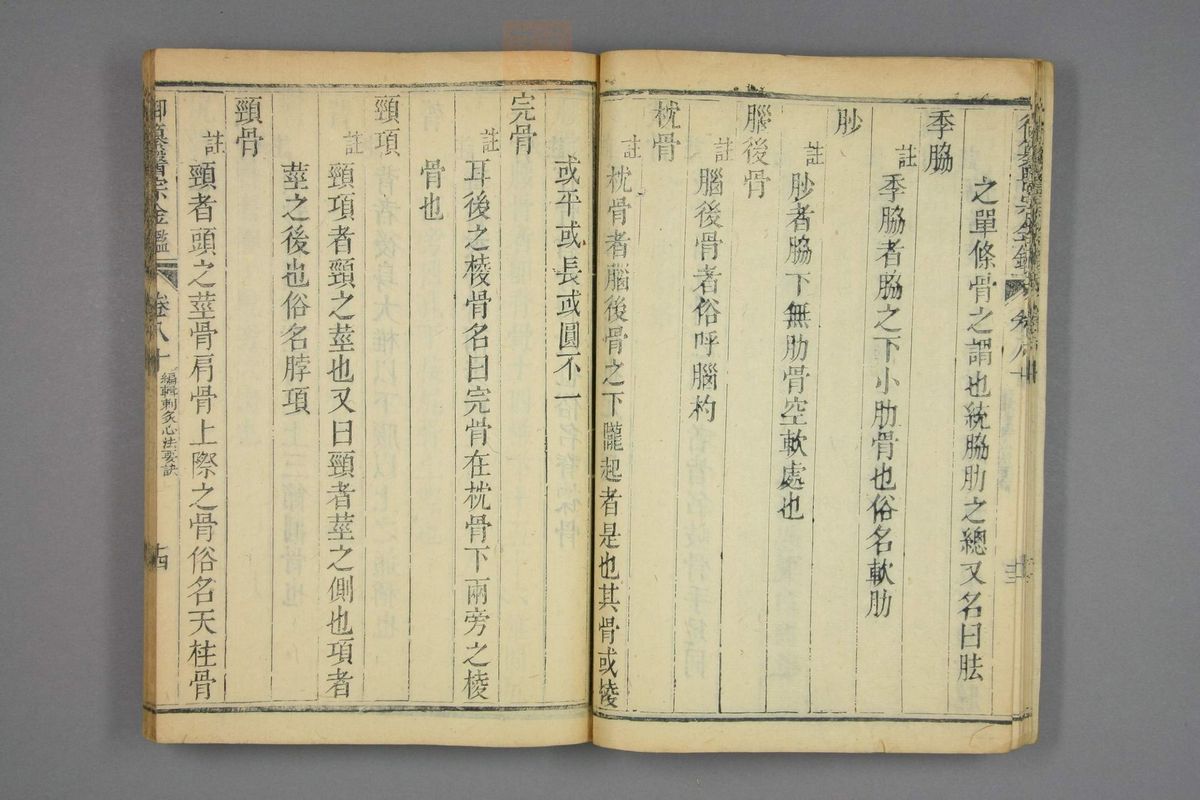 之單條骨之謂也統脇肋之總又名曰胠
季脇
註 季脇者脇之下小肋骨也俗名軟肋
䏚
註 䏚者脇下無肋骨空軟處也
腦後骨
註 腦後骨者俗呼腦杓
枕骨
註 枕骨者腦後骨之下隴起者是也其骨或稜
或平或長或圓不一
完骨
註 耳後之棱骨名曰完骨在枕骨下兩旁之棱
骨也
頸項
註 頸項者頸之莖也又曰頸者莖之側也項者
莖之後也俗名脖項
頸骨
註 頸者頭之莖骨肩骨上際之骨俗名天柱骨
御纂醫宗金鑑 卷八十 編輯刺灸心法要訣 十四